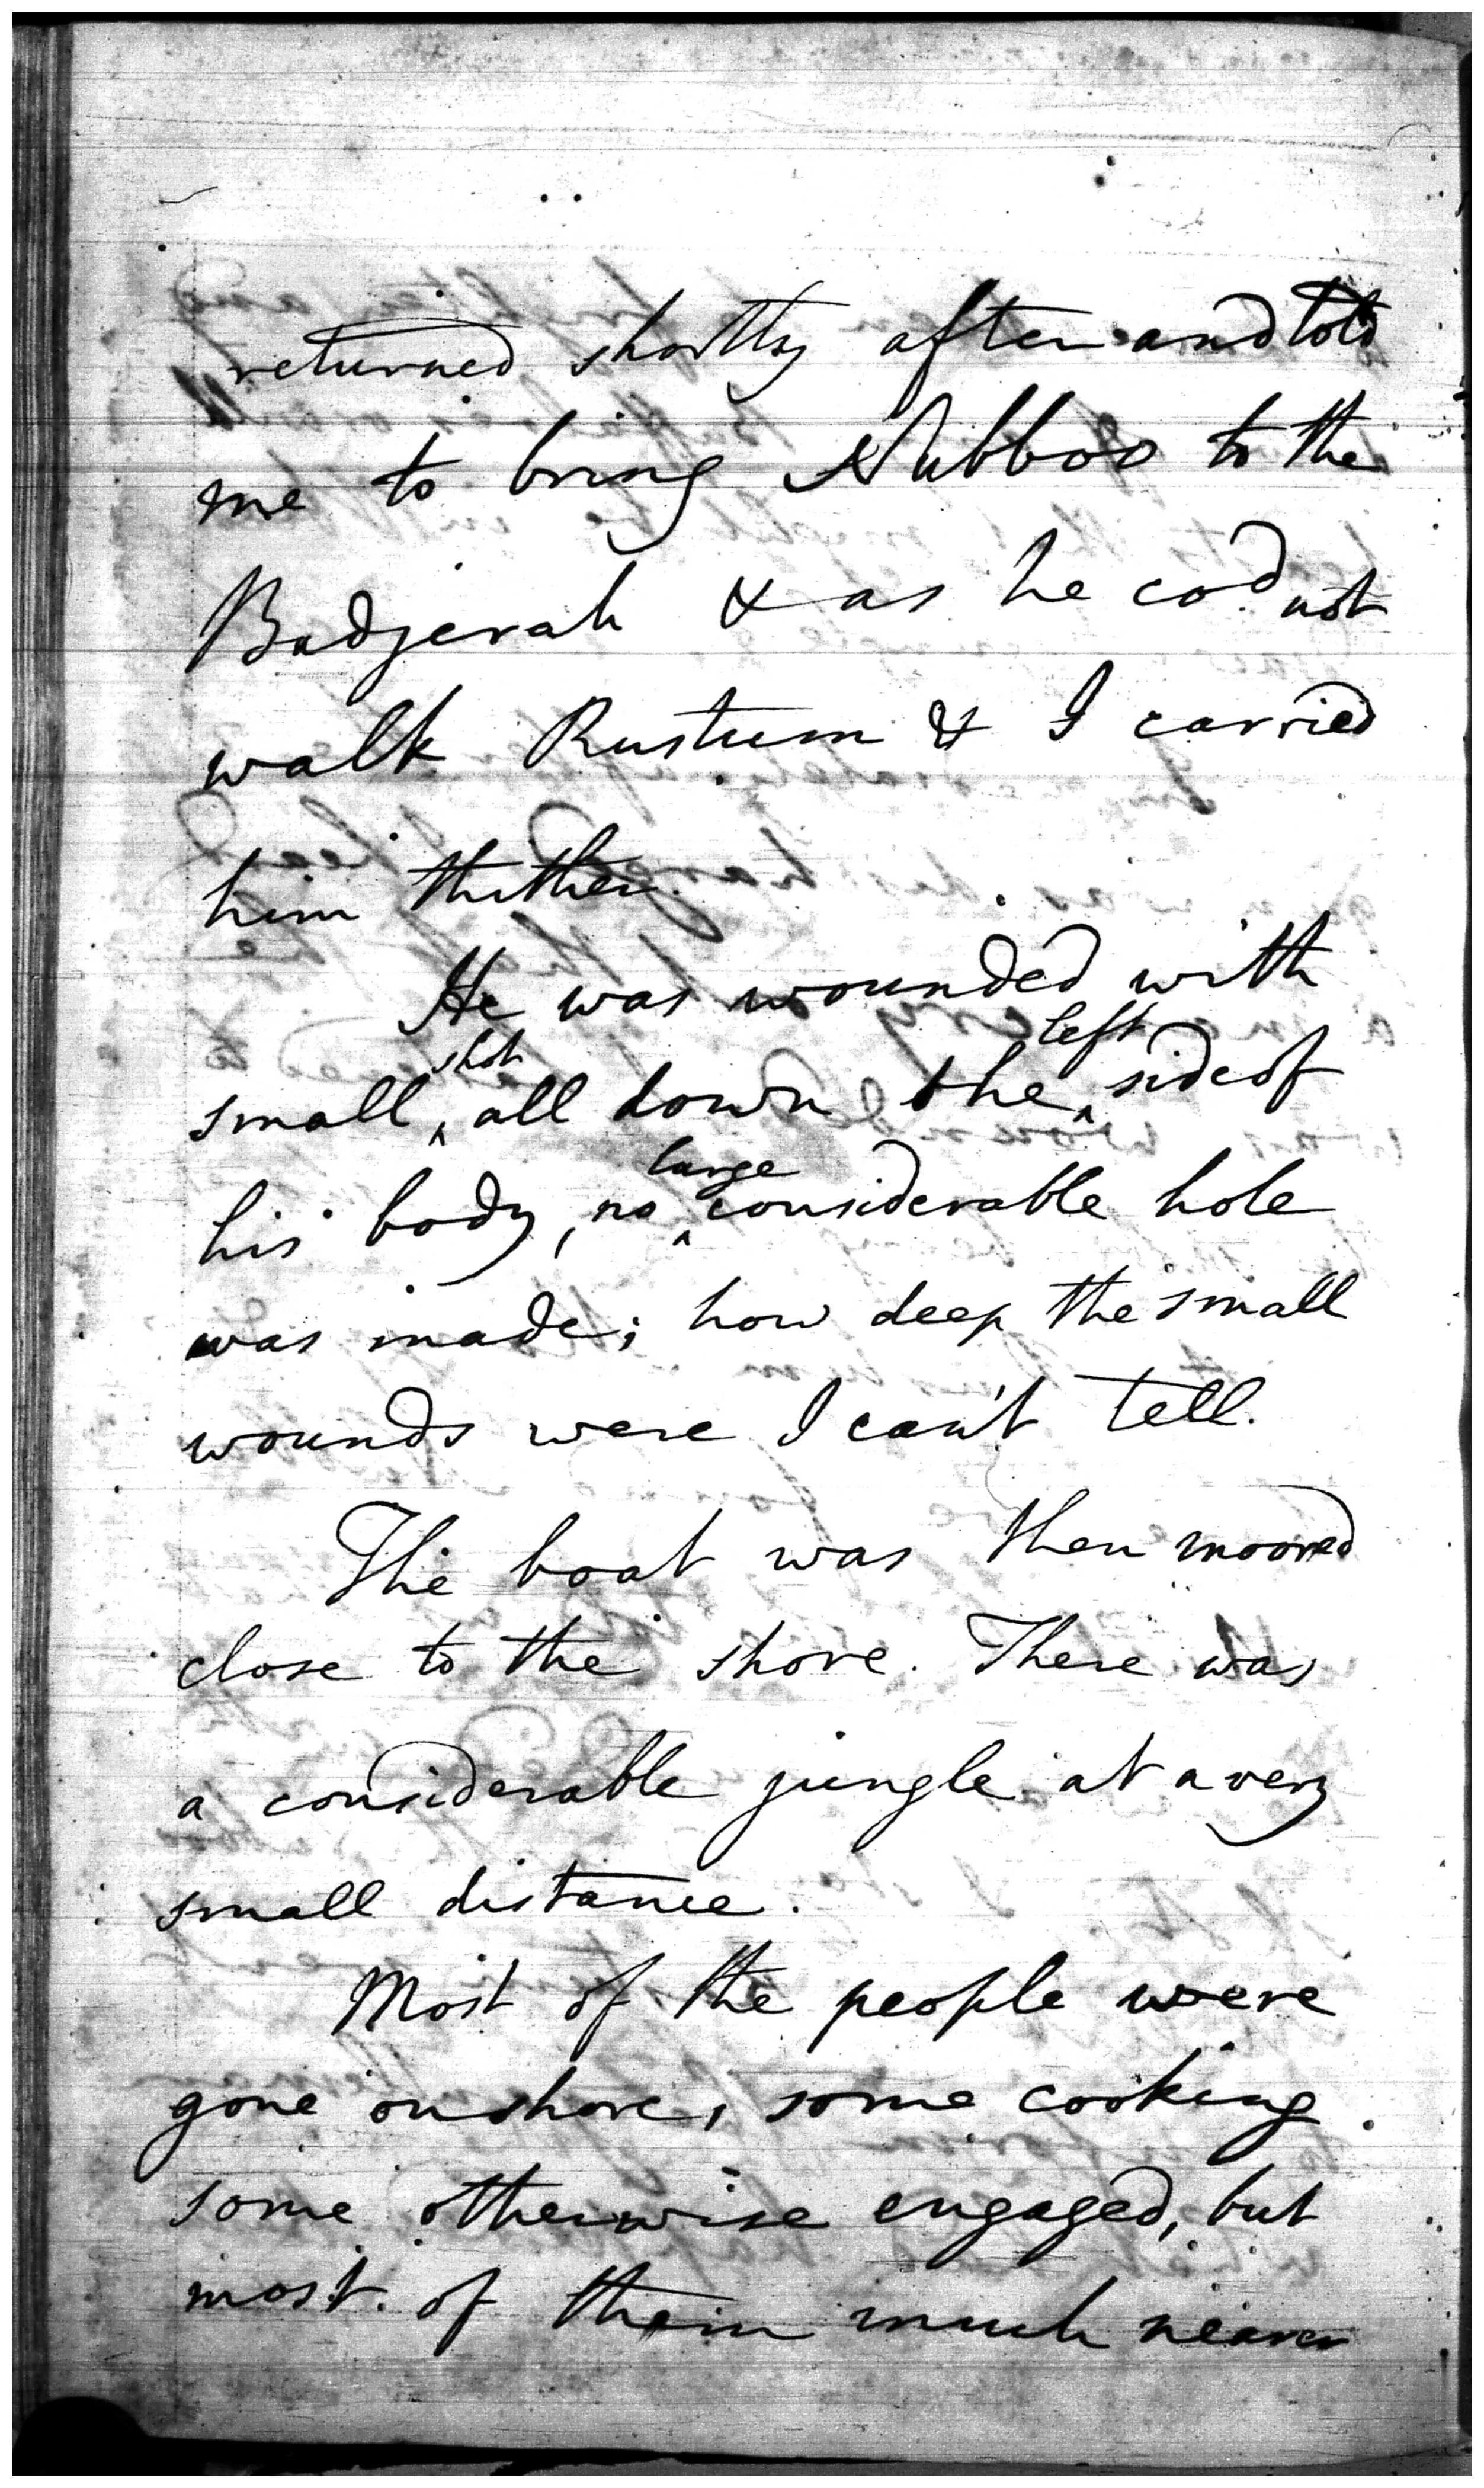 returned shortly after and told
me to bring Nubboo to the
Badjerah & as he cod. not
walk Rustum & I carried
him thither.
He was wounded with
small shot all down the left side of
his body, no large considerable hole
was made; how deep the small
wounds were I can't tell.
The boat was then moored
close to the shore. There was
a considerable jungle at a very
small distance.
Most of the people were
gone on shore, some cooking
some otherwise engaged, but
most of them much nearer